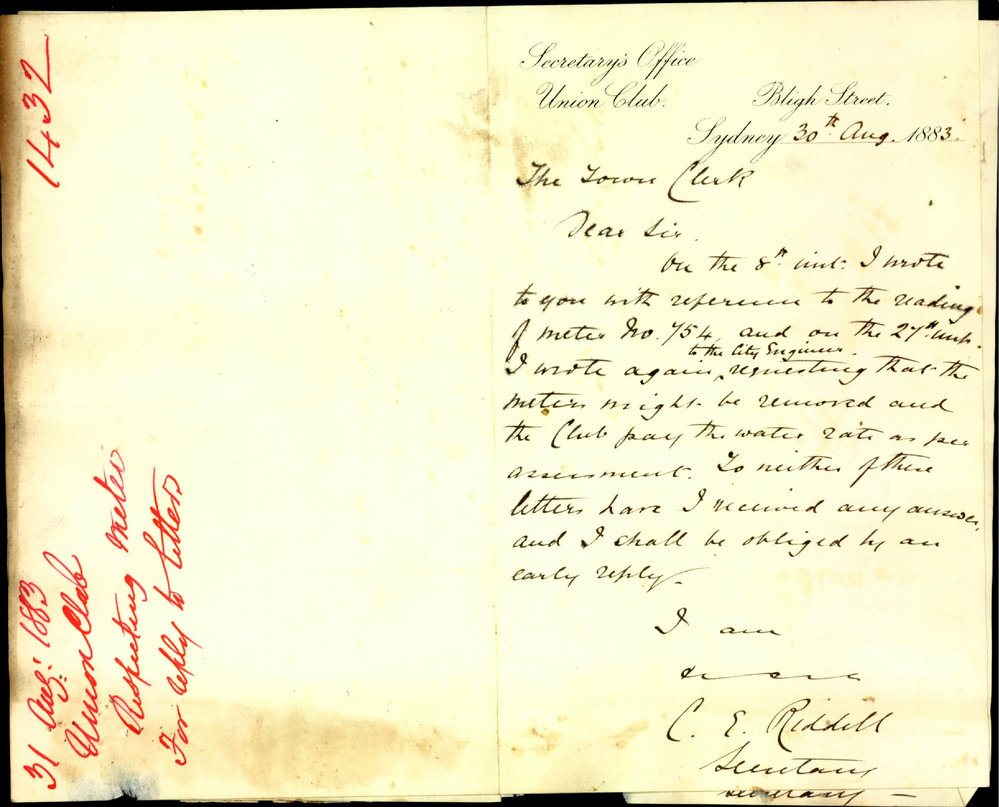 1432
31 Aug: 1883
Union Club
Respecting Meter
For reply to letters
Secretary's Office
Union Club. Bligh Street.
Sydney 30th Aug. 1883.
The Town Clerk
Dear Sir.
On the 8th inst. I wrote
to you with reference to the reading
of meter No. 754, and on the 27th inst.
to the City Engineer.
I wrote again requesting that the
meters might be removed and
the Club pay the water rate as per
assessment. To neither of these
letters have I received any answer,
and I shall be obliged by an
early reply.
I am
C. E. Riddell
Secretary
Secretary